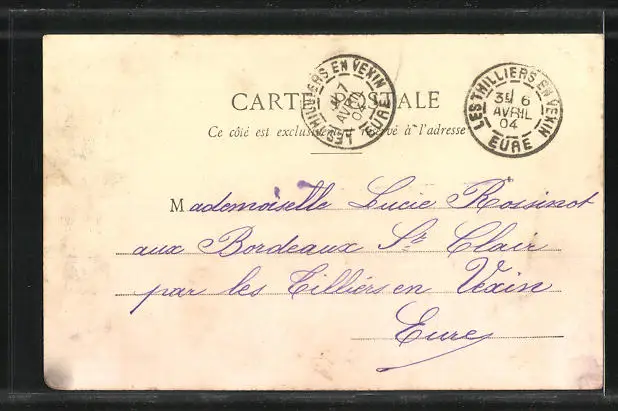 LES THILLIERS EN VEXIN
7
AVRIL
04
EURE
LES THILLIERS EN VEXIN
3E 6
AVRIL
04
EURE
CARTE POSTALE
Ce côté est exclusivement réservé à l'adresse
Mademoiselle Lucie Rossinot
aux Bordeaux St Clair
par les Tilliers en Vexin
Eure